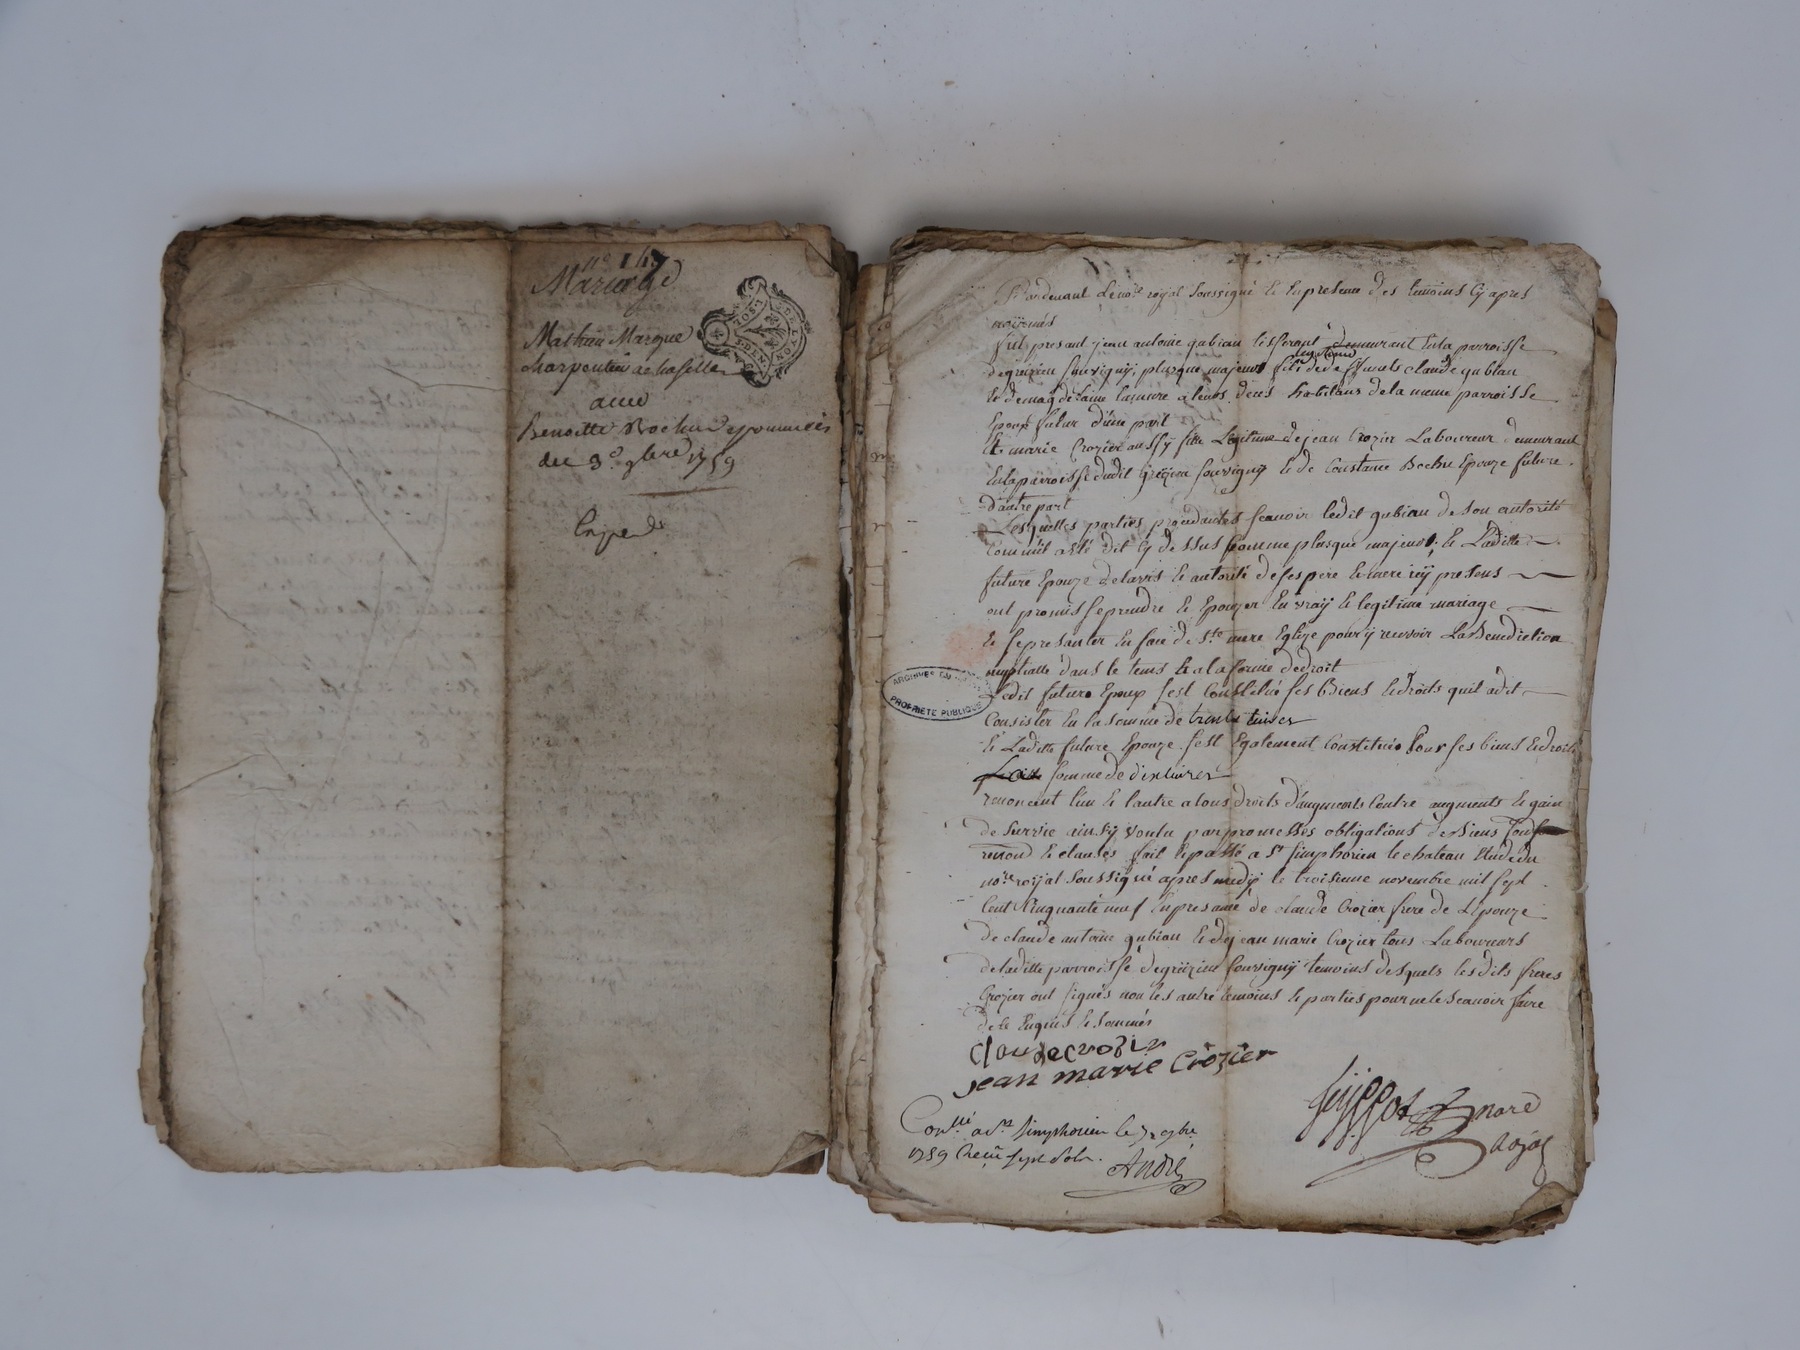 n° 147
Mariage
Mathieu Marque
charpentier a chaselle
avec
Benoitte Rochu
du 3e 9bre 1759
Expedé
Pardevant le no.re royal soussigné et en presence des temoins cy apres
nommés
fut presant jean antoine gubian tisserant demeurant en la parroisse
de grezieu souvigny, plusque majeur fils legitime de defunts claude gubian
habitans de la meme parroisse
Epoux futur d'une part
Et marie Crozier aussy fille Legitime de jean Crozier Laboureur demeurant
En la parroisse dudit Grezieu souvigny et de Constance Bochu Epouze future
d'autre part
Lesquelles parties procedantes scavoir ledit gubian de son autorité
Comm'il a eté dit cy dessus comme plusque majeur, et Laditte
future Epouze de l'avis et autorité de ses pere et mere icy presens
ont promis se prendre et Epouzer En vray et legitime mariage
et se presanter En face de Ste mere Eglize pour y recevoir La Benediction
nuptialle dans le tems et a la forme de droit
Ledit futur Epoux s'est Constitué ses Biens et droits quil a dit
Consister En la somme de trente livres
Et Laditte future Epouze s'est Egalement Constituée Pour ses biens et droits
somme de dix livres
renoncent l'un et l'autre a tous droits d'augments Contre augments et gain
de survie ainsy voulu par promesses obligations de Biens
renond et clauses fait et passé a St simphorien le chateau Etude du
no.re royal soussigné apres midy le troisieme novembre mil sept
Cent Cinquante neuf En presance de claude Crozier frere de L'epouze
de claude antoine gubian et de jean marie Crozier tous Laboureurs
de laditte parroisse de grezieu souvigny temoins desquels lesdits freres
Crozier ont signés non les autre temoins et parties pour ne le scavoir faire
de ce Enquis et sommés
claude crozier
jean marie Crozier
Guyot
nore
Royal
Con.llé a St simphorien le 7 9bre
1759 Recu sept sols.
André
ARCHIVES
PROPRIÉTÉ PUBLIQUE